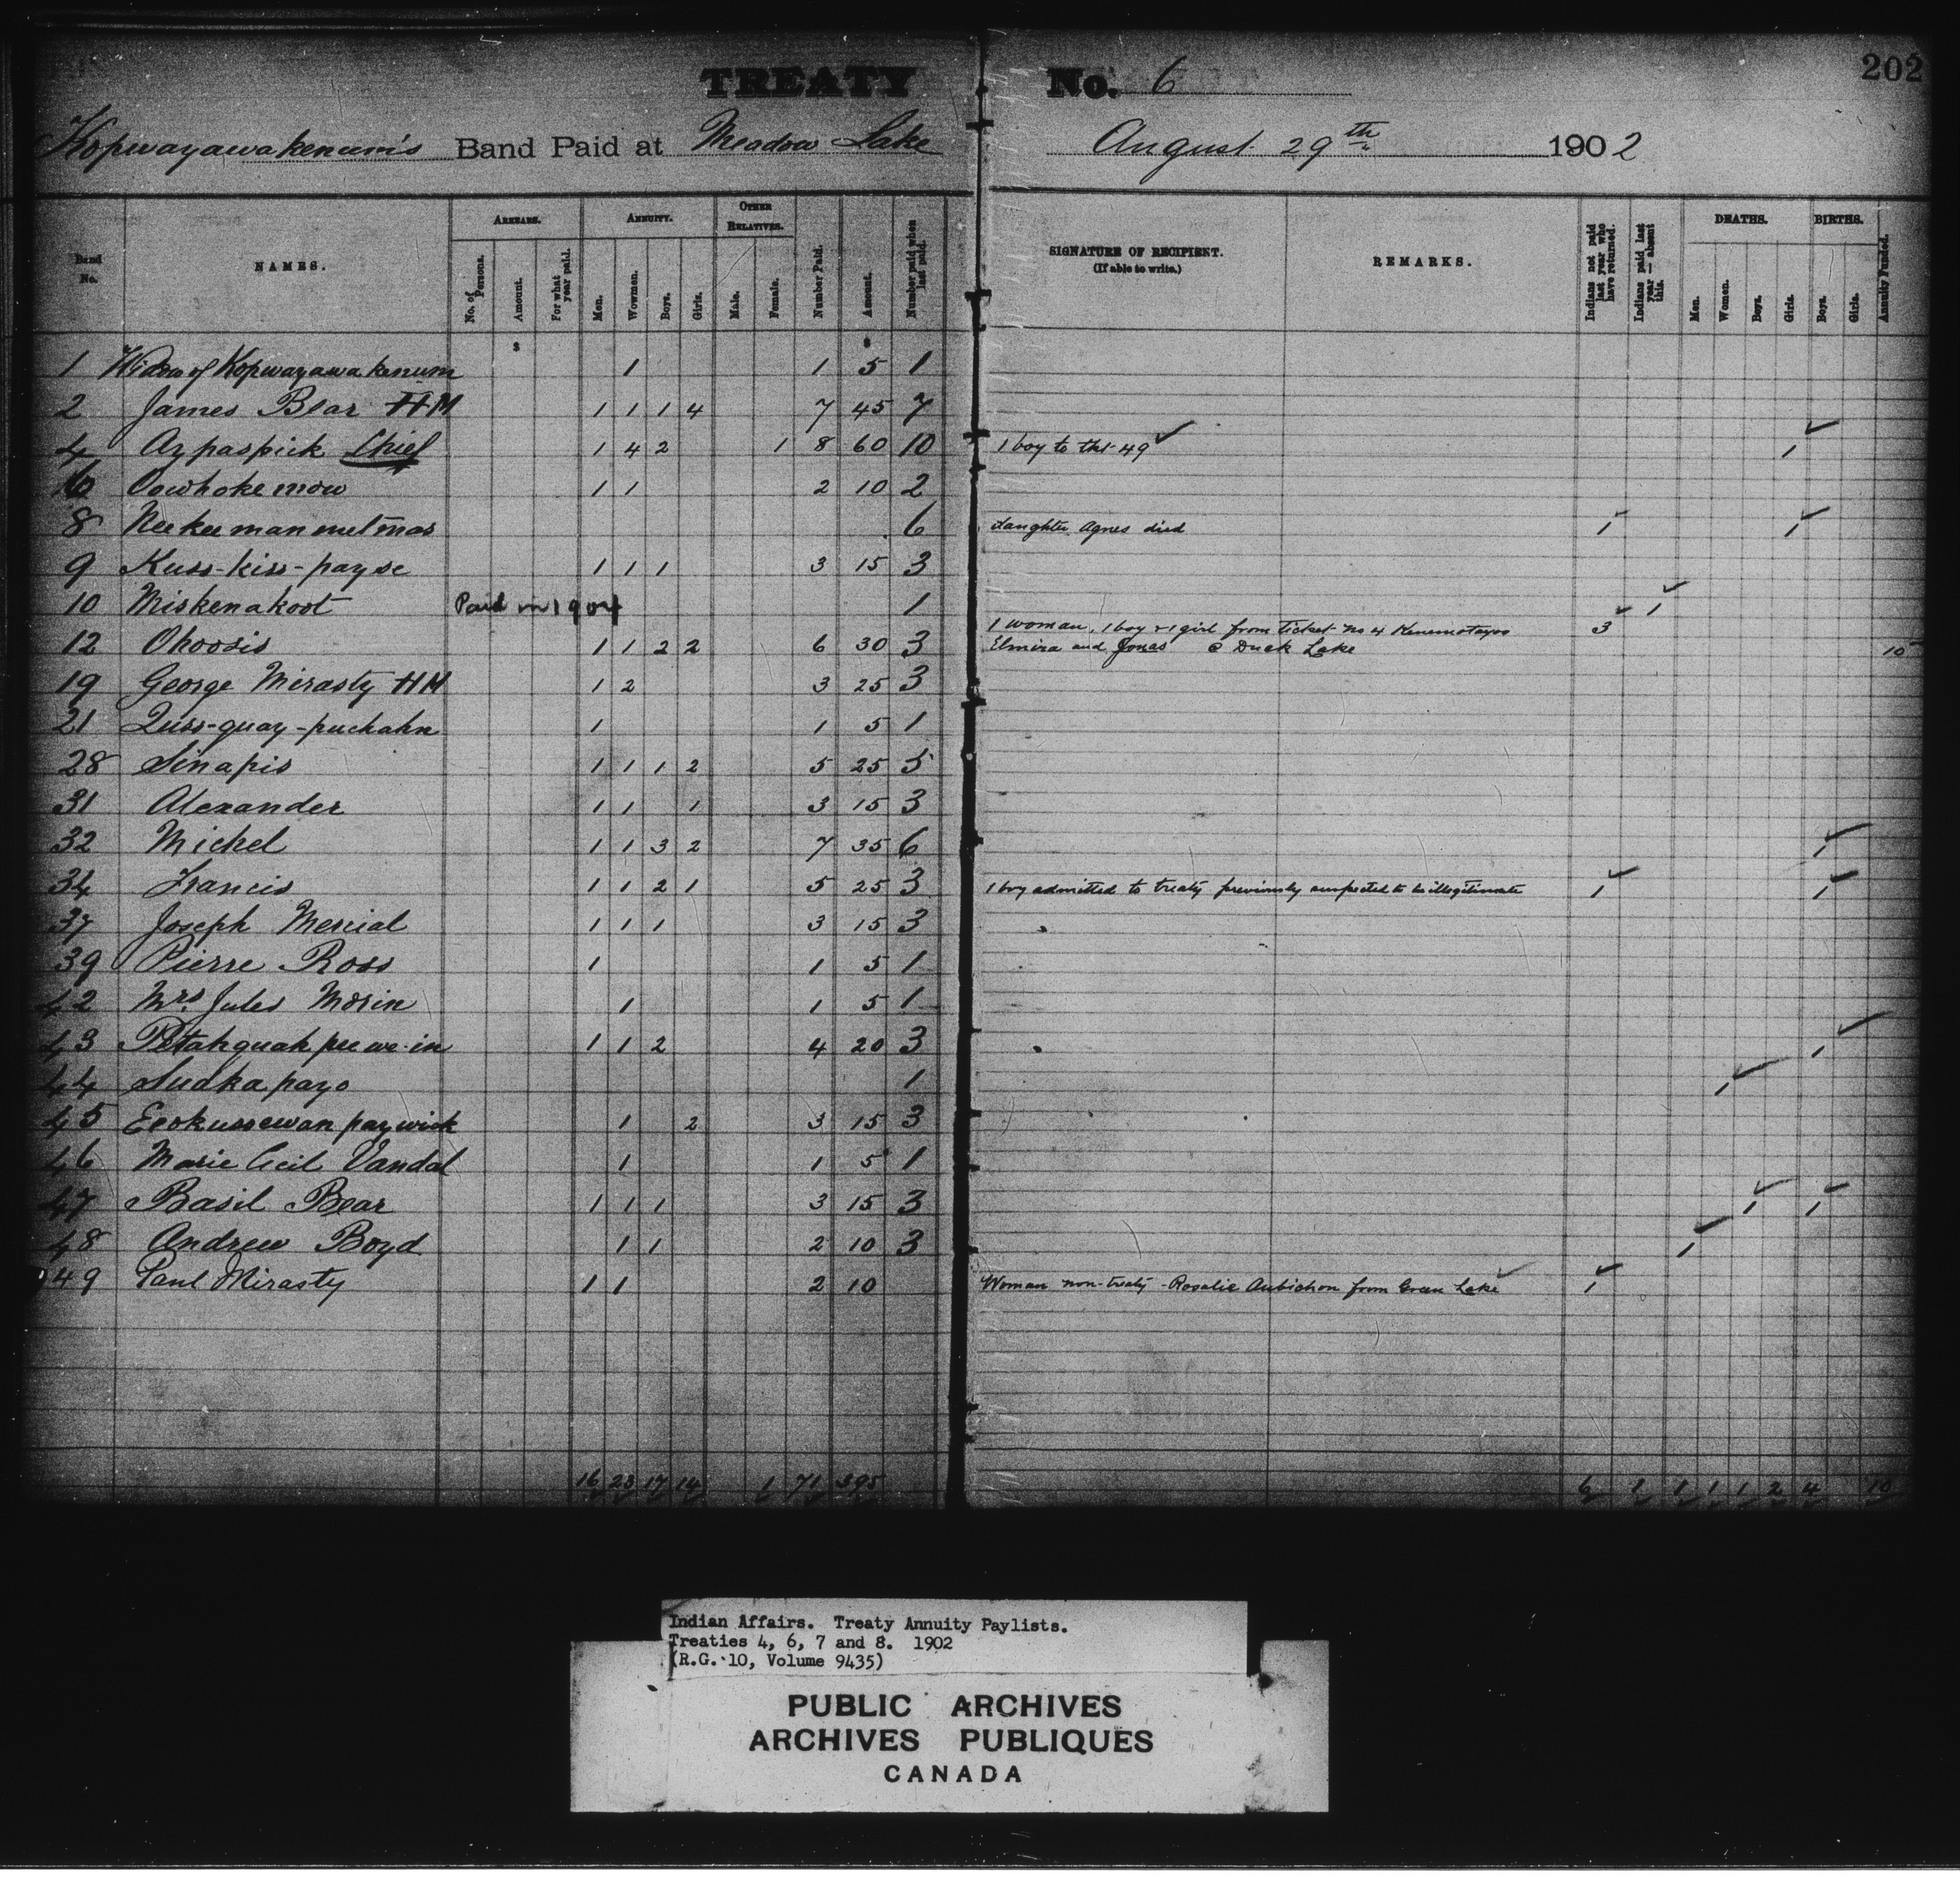 202
TREATY No. 6
Kopwayawakenum's Band Paid at Meadow Lake August 29th 1902
Band No. NAMES. ARREARS. No. of Persons. Amount. For what year paid. ANNUITY. Men. Wowmen. Boys. Girls. OTHER RELATIVES. Male. Female. Number Paid. Amount. Number paid when last paid. SIGNATURE OF RECIPIENT. (If able to write.) REMARKS. Indians not paid last year who have returned. Indians paid last year — absent this. DEATHS. Men. Women. Boys. Girls. BIRTHS. Boys. Girls. Annuity Funded.
$ $
1 Widow of Kopwayawakenum 1 1 5 1
2 James Bear HM 1 1 1 4 7 45 7
4 Aypaspick Chief 1 4 2 1 8 60 10 1 boy to tkt 49 1
Cowhokemow 1 1 2 10 2
8 6 daughter Agnes died 1 1
9 Kuss-kiss-payse 1 1 1 3 15 3
10 Miskenakoot Paid in 1904 1 1
12 Ohoosis 1 1 2 2 6 30 3 1 woman, 1 boy & 1 girl from ticket no 4 3
Elmira and Jonas @ Duck Lake 10
19 George Mirasty HM 1 2 3 25 3
21 Quss-quay-puchahn 1 1 5 1
28 Sinapis 1 1 1 2 5 25 5
31 Alexander 1 1 1 3 15 3
32 Michel 1 1 3 2 7 35 6 1
34 Francis 1 1 2 1 5 25 3 1 boy admitted to treaty previously suspected to be illegitimate 1 1
37 Joseph Mercial 1 1 1 3 15 3
39 Pierre Ross 1 1 5 1
42 Mrs Jules Morin 1 1 5 1
43 Petahquahpeewe-in 1 1 2 4 20 3 1
44 Sudkapayo 1 1
45 Eeokussewanpaywick 1 2 3 15 3
46 Marie Cecil Vandal 1 1 5 1
47 Basil Bear 1 1 1 3 15 3 1 1
48 Andrew Boyd 1 1 2 10 3 1
49 Paul Mirasty 1 1 2 10 Woman non-treaty - Rosalie Aubichon from Green Lake 1
16 23 17 14 1 71 395 6 1 1 1 1 2 4 10
Indian Affairs. Treaty Annuity Paylists.
Treaties 4, 6, 7 and 8. 1902
(R.G. 10, Volume 9435)
PUBLIC ARCHIVES
ARCHIVES PUBLIQUES
CANADA